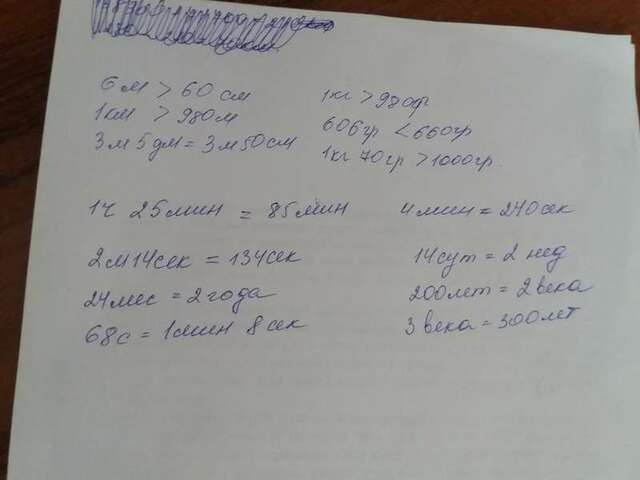 6 м > 60 см 1 кг > 980 гр
1 км > 980 м 606 гр < 660 гр
3 м 5 дм = 3 м 50 см 1 кг 40 гр > 1000 гр.
1 ч 25 мин = 85 мин 4 мин = 240 сек
2 м 14 сек = 134 сек 14 сут = 2 нед
24 мес = 2 года 200 лет = 2 века
68 с = 1 мин 8 сек 3 века = 300 лет